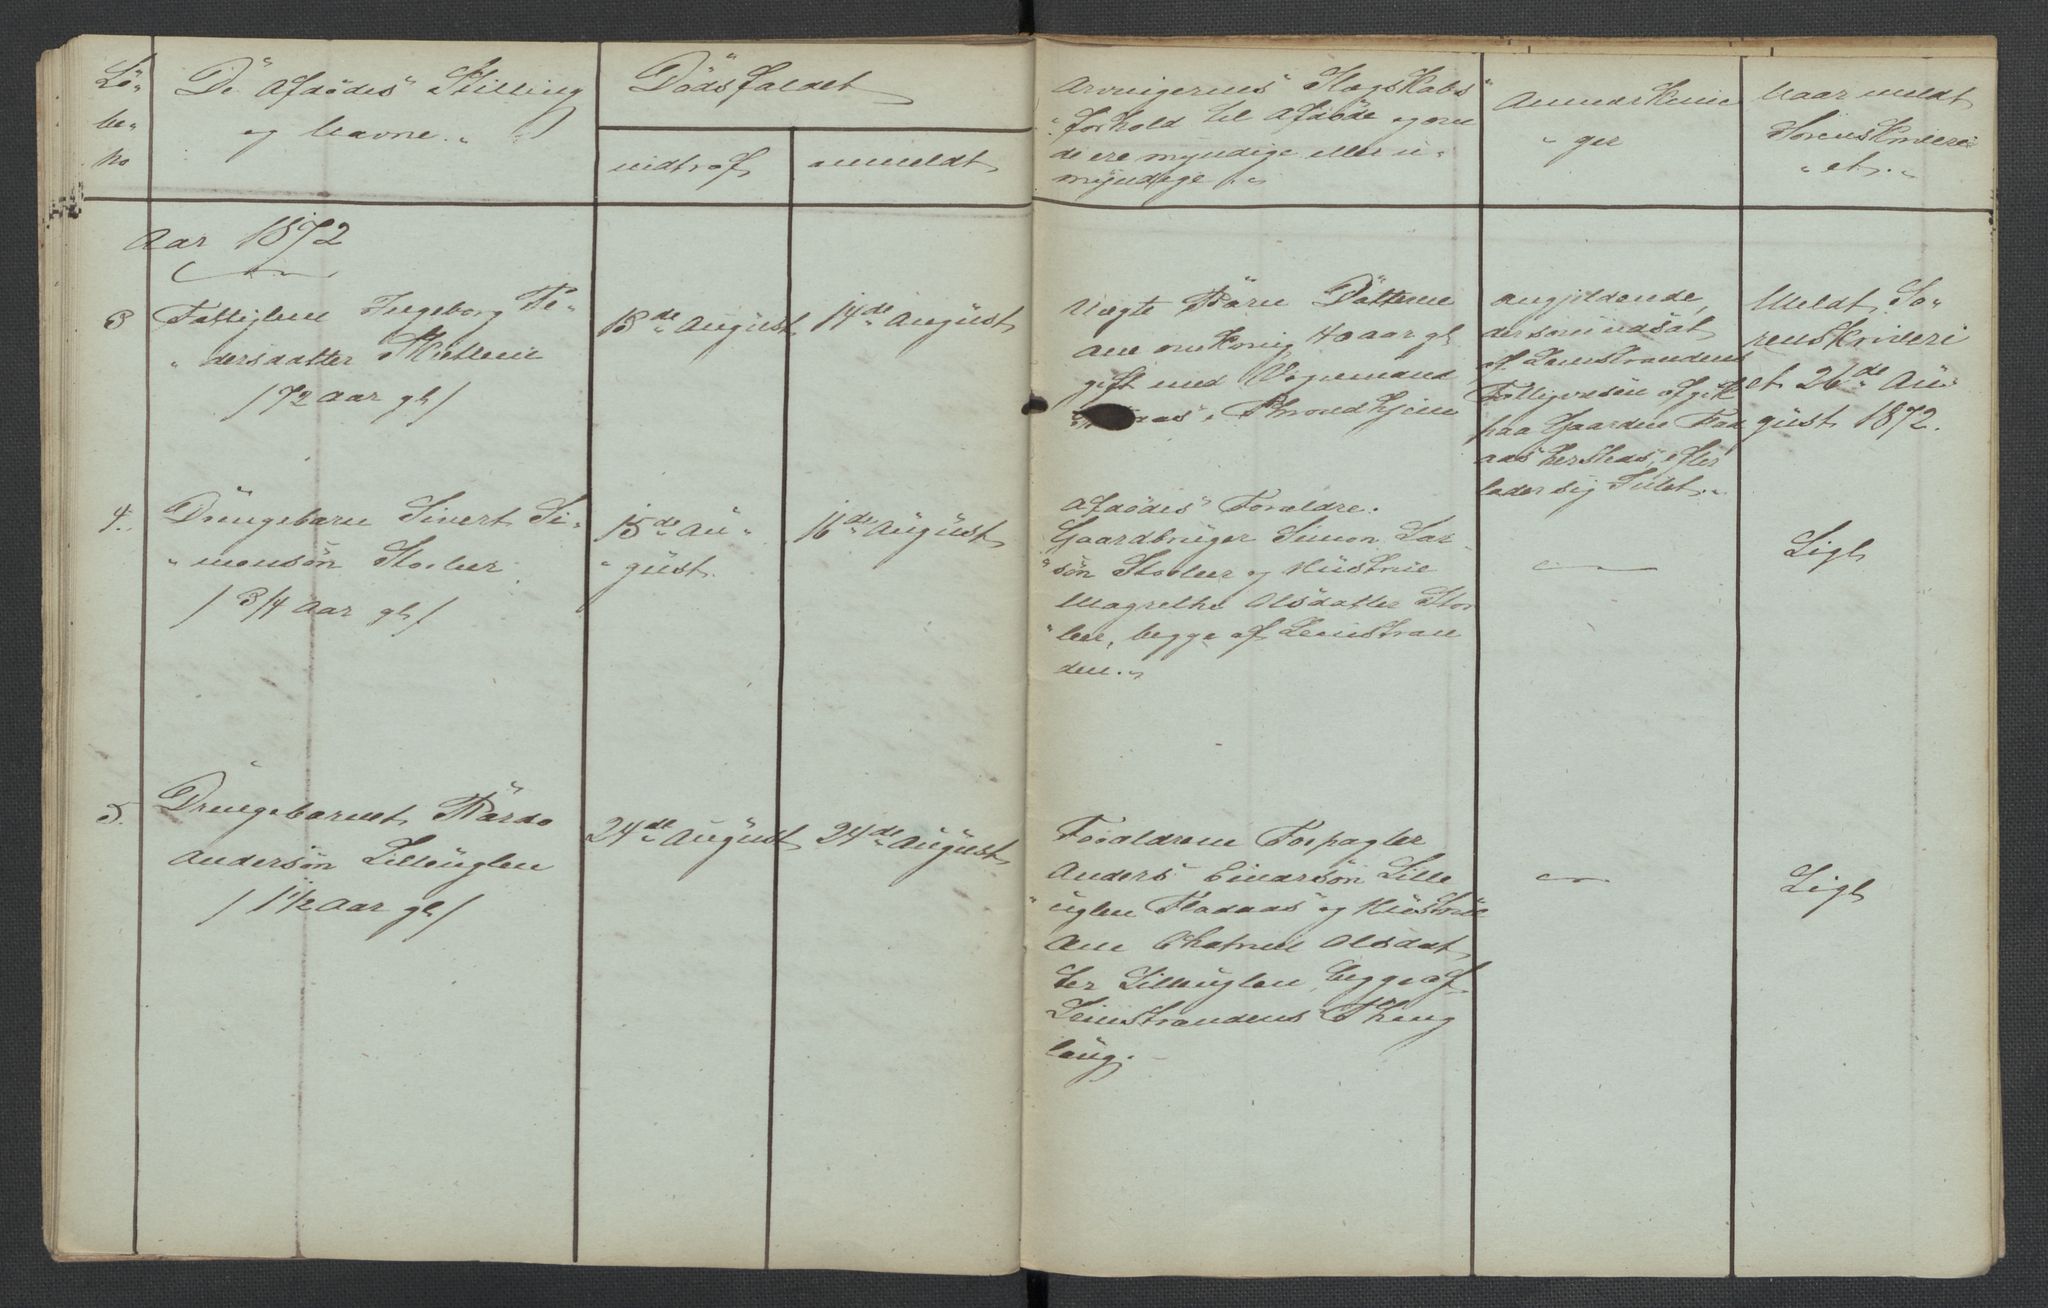 Lö-
be-
no
De Afdödes Stilling
og Navne.
Dödsfaldet
indtraf
anmeldt
Arvingernes Slægskabs
forhold til Afdöde og om
de ere myndige eller u-
myndige
Anmærknin
ger
Naar meldt
Sorenskriveri
et.
Aar 1872
3
Fattiglem Ingeborg Pe-
dersdatter
/72 Aar gl/
13de August
14de August
Uægte Börn Dattern
Ane omkring 40 aar gl
gift med Vognmand
i Throndhjem
angjeldende,
var indsat
af Leinstrandens
Fattigvæsen
paa Gaarden Flad
aas efter
lader sig Intet.
Meldt So-
renskriveri
et 26de Au-
gust 1872.
4.
Drengebarn Sivert Si-
monsön Storler
/3/4 Aar gl/
15de Au-
gust.
16de August
Afdödes Foreldre.
Gaardbruger Simon Lar-
sön Storler og Hustrue
Magrethe Olsdatter Stor
ler, begge af Leinstran
den.
Ligl
5.
Drengebarnet Bårdo
Andersön Lilleuglen
/1 1/2 Aar gl/
24de August
24de August
Foraldrene Forpagter
Anders Einarsön Lille
uglen Fladaas og Hustrue
Ane Chatrine Olsdat
ter Lilleuglen, begge af
Leinstrandens Thing
laug.
Ligl